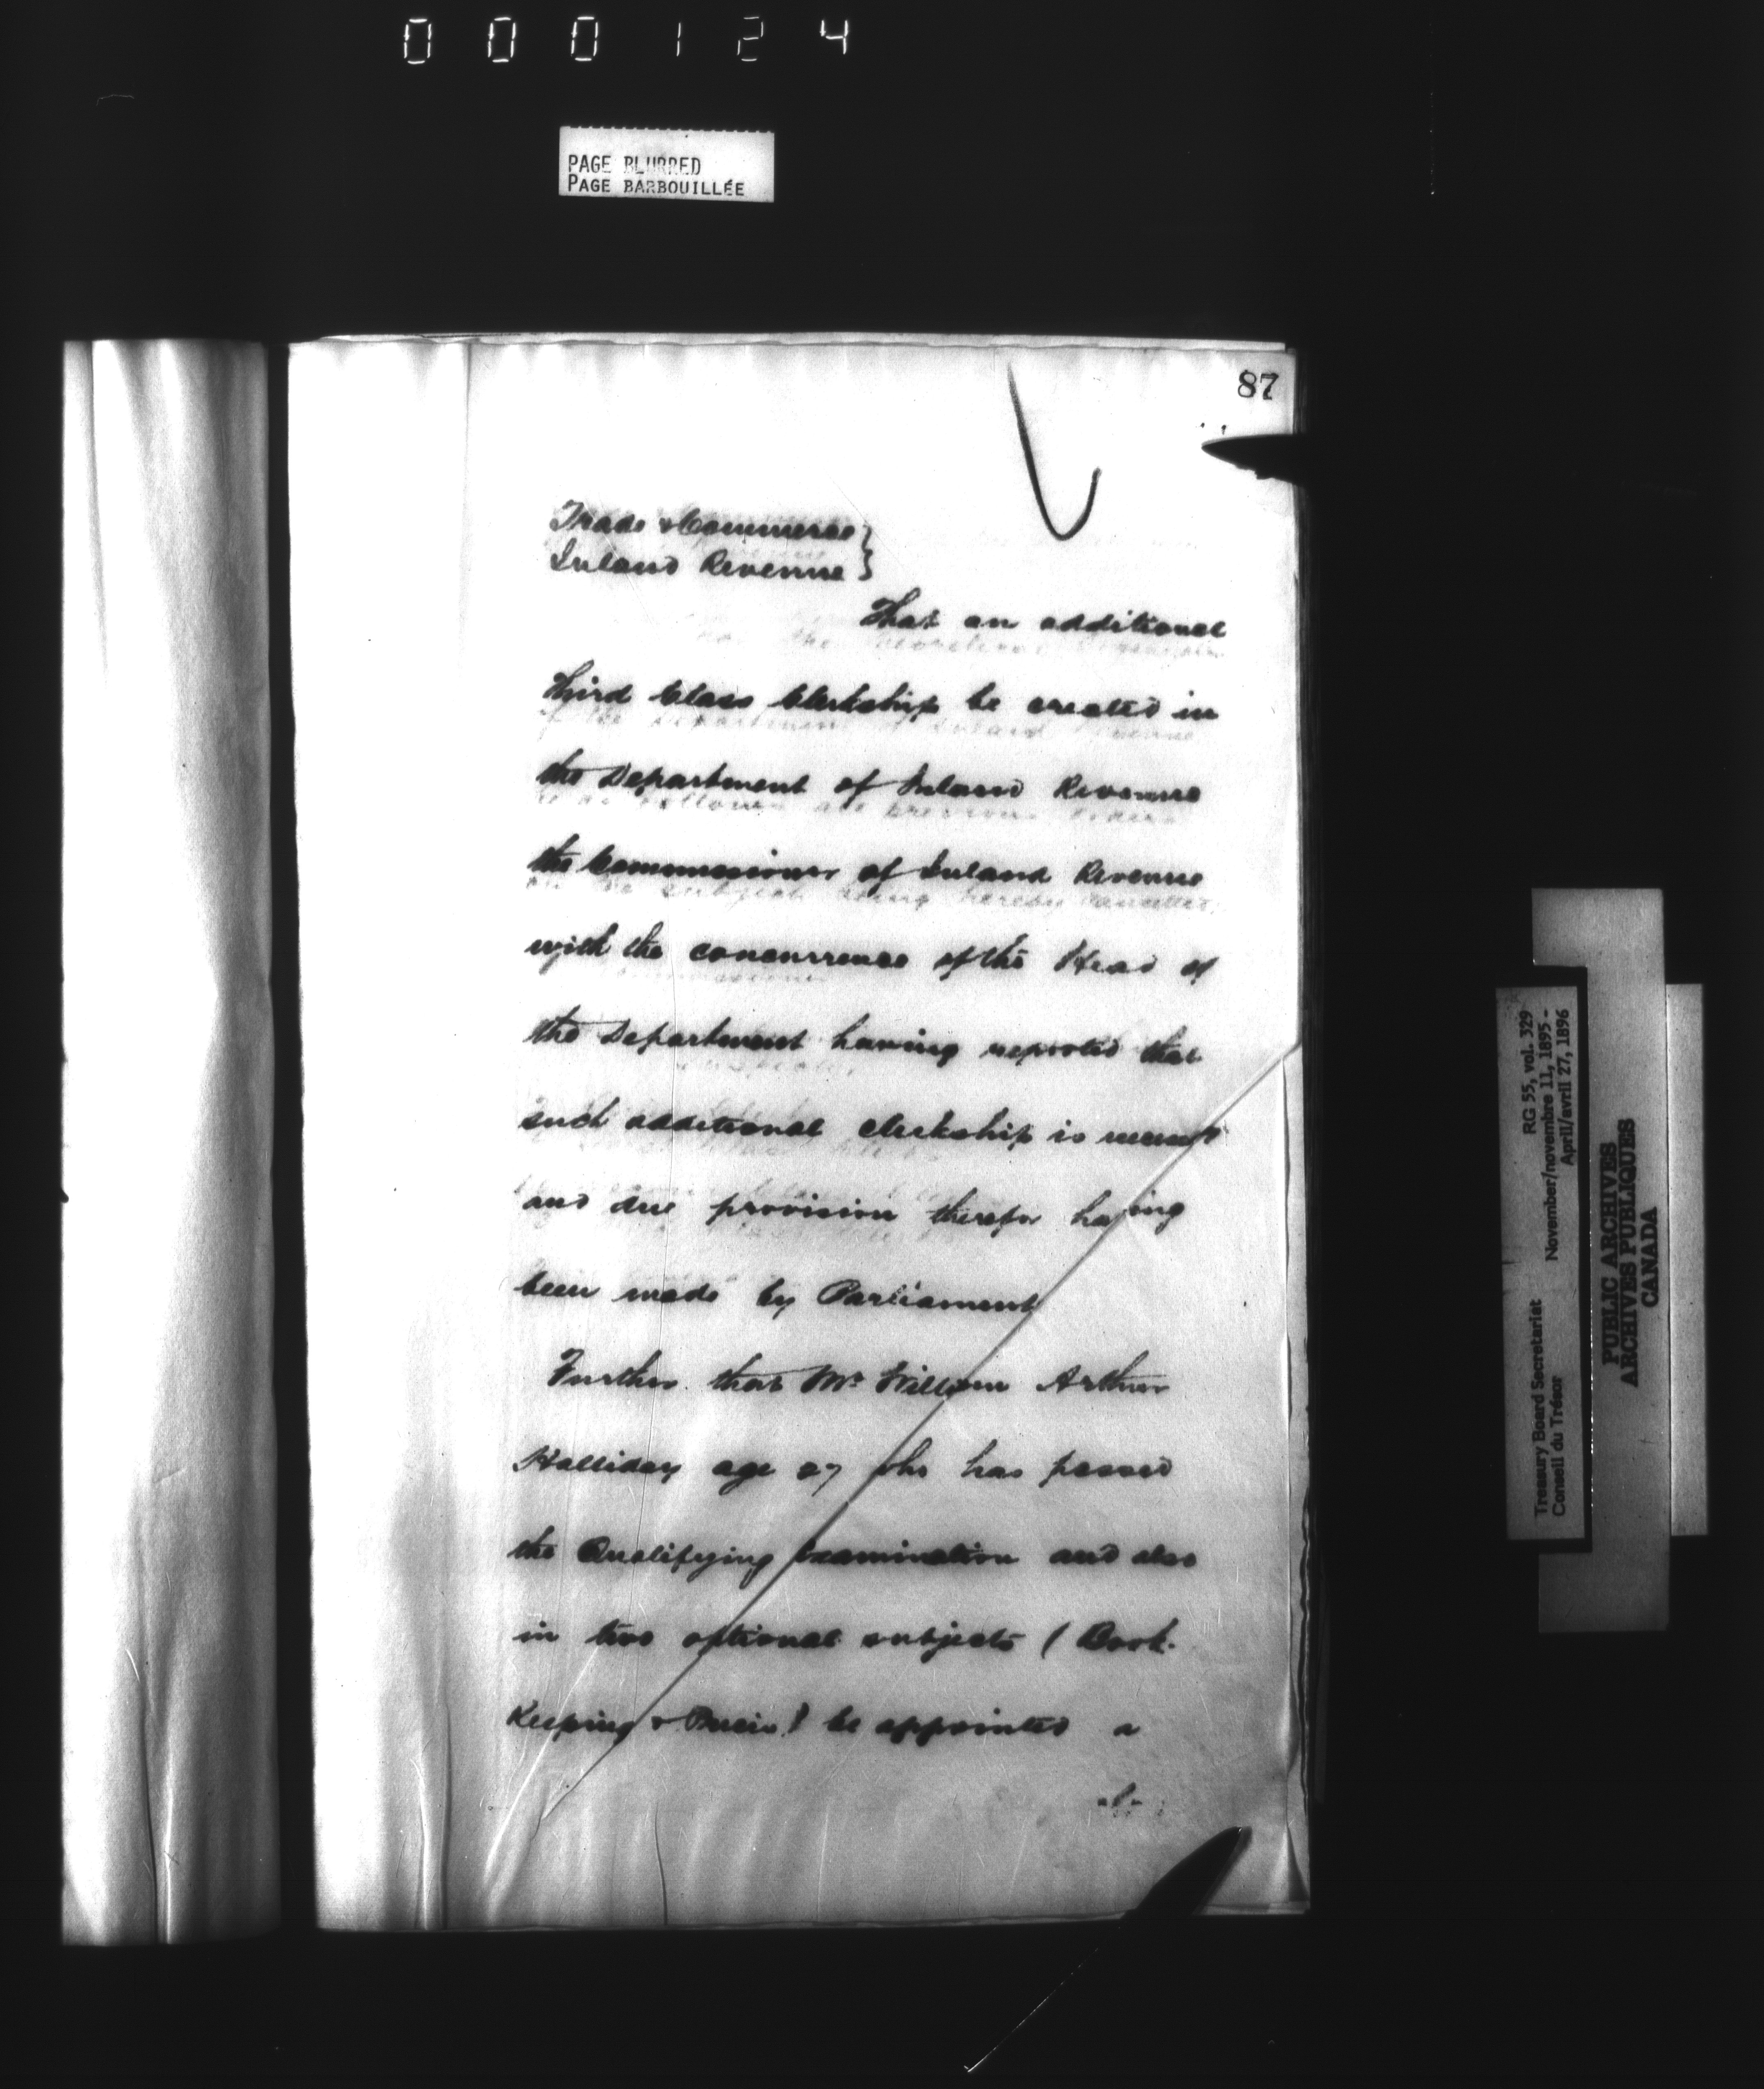 000124
PAGE BLURRED
PAGE BARBOUILLÉE
87
Trade & Commerce }
Inland Revenue }
That an additional
Third Class Clerkship be created in
the Department of Inland Revenue
the Commissioner of Inland Revenue
with the concurrence of the Head of
the Department having reported that
such additional clerkship is
and due provision therefor having
been made by Parliament
Further that Mr William Arthur
Halliday age 27 who has passed
the Qualifying Examination and also
in two optional subjects ( Book
Keeping & Précis ) be appointed a
Treasury Board Secretariat RG 55, vol. 329
Conseil du Trésor November/novembre 11, 1895 -
April/avril 27, 1896
PUBLIC ARCHIVES
ARCHIVES PUBLIQUES
CANADA